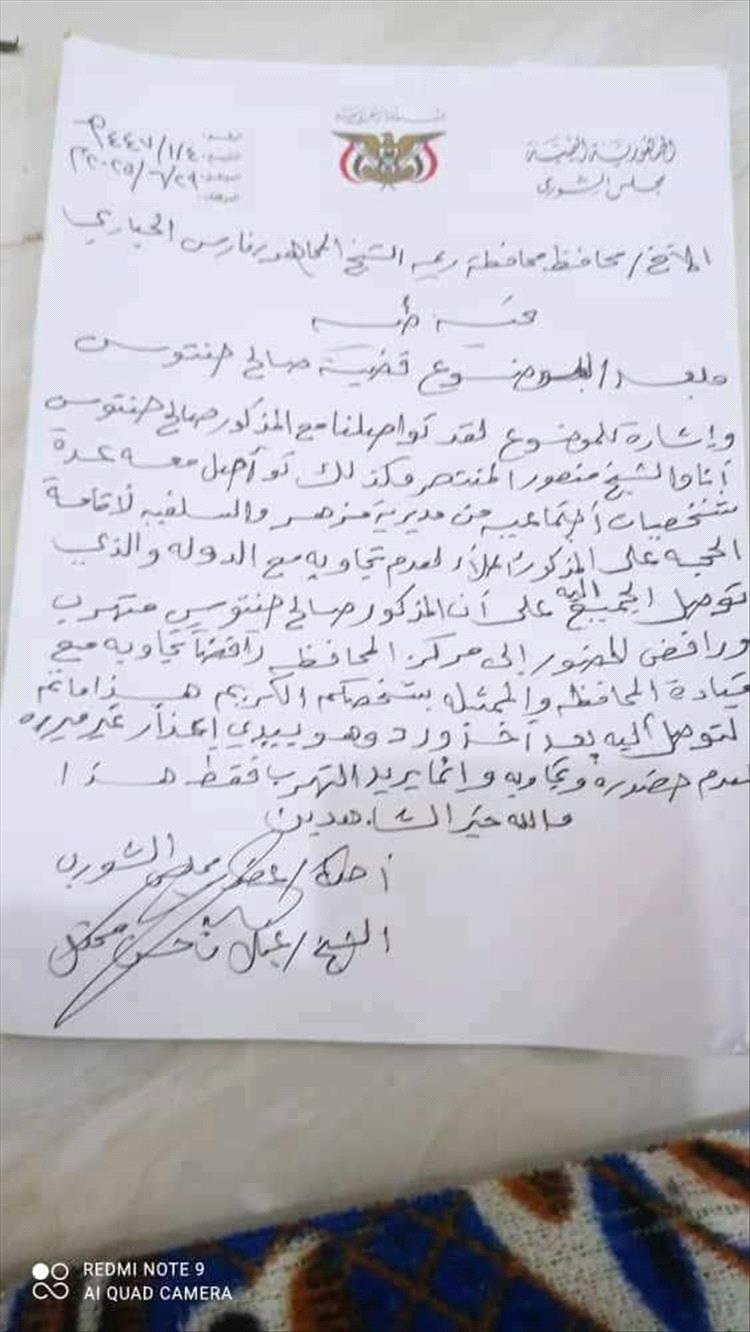 الجمهورية اليمنية
مجلس الشورى
١٤٤٧/١/٤
٢٠٢٥/٦/٢٩م
الأخ/ محافظ محافظة ريمه الشيخ المجاهد فارس الحباري
تحيه طيبه
وبعد/ الموضوع قضية صالح حنتوس
وإشارة للموضوع لقد تواصلنا مع المذكور صالح حنتوس
أنا والشيخ منصور المنتصر وكذلك تواصل معه عدة
شخصيات أجتماعيه من مديرية مزهر والسلفيه لأقامة
الحجه على المذكور أعلاه لعدم تجاوبه مع الدوله والذي
توصل الجميع اليه على أن المذكور صالح حنتوس متهرب
ورافض للحضور إلى مركز المحافظه رافضاً تجاوبه مع
قيادة المحافظه والممثله بشخصكم الكريم هذا ماتم
لتوصل أليه بعد أخذ ورد وهو يبدي إعذار غير مبرره
لعدم حضوره وتجاوبه وانما يريد التهرب فقط هذا
والله خير الشاهدين
أخوكم/ عضو مجلس الشورى
الشيخ/ محسن
REDMI NOTE 9
AI QUAD CAMERA